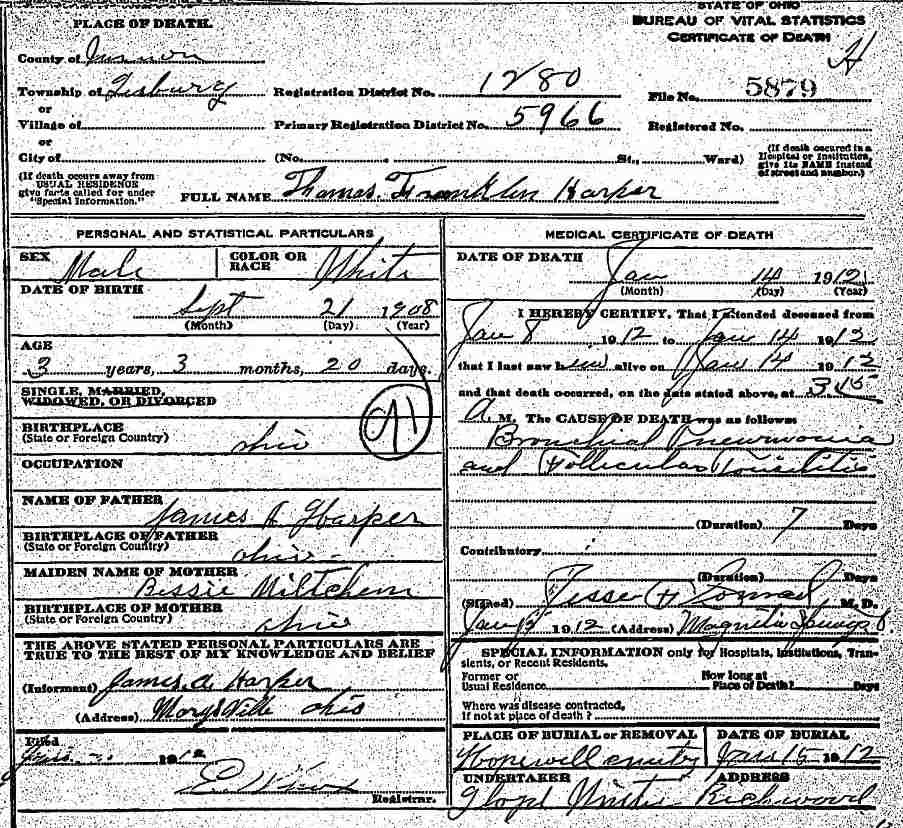 STATE OF OHIO
BUREAU OF VITAL STATISTICS
CERTIFICATE OF DEATH
H
PLACE OF DEATH.
County of
Township of
Registration District No. 1280
File No. 5879
or
Village of
Primary Registration District No. 5966
Registered No.
or
City of (No. , St., Ward)
(If death occurs away from USUAL RESIDENCE give facts called for under "Special Information.")
(If death occured in a Hospital or Institution, give its NAME instead of street and number.)
FULL NAME Thomas Franklin Harper
PERSONAL AND STATISTICAL PARTICULARS
SEX Male
COLOR OR RACE White
DATE OF BIRTH
Sept 21 1908
(Month) (Day) (Year)
AGE
3 years, 3 months, 20 days.
SINGLE, MARRIED,
WIDOWED, OR DIVORCED
91
BIRTHPLACE
(State or Foreign Country) Ohio
OCCUPATION
NAME OF FATHER
James A Harper
BIRTHPLACE OF FATHER
(State or Foreign Country) Ohio
MAIDEN NAME OF MOTHER
Bessie
BIRTHPLACE OF MOTHER
(State or Foreign Country) Ohio
THE ABOVE STATED PERSONAL PARTICULARS ARE
TRUE TO THE BEST OF MY KNOWLEDGE AND BELIEF
(Informant) James A Harper
(Address) Marysville Ohio
Filed
1912
Registrar.
MEDICAL CERTIFICATE OF DEATH
DATE OF DEATH
Jan 14 1912
(Month) (Day) (Year)
I HEREBY CERTIFY, That I attended deceased from
Jan 8 1912 to Jan 14 1912
that I last saw him alive on Jan 14 1912
and that death occurred, on the date stated above, at 3:15
A. M. The CAUSE OF DEATH was as follows:
Bronchial Pneumonia
and Follicular Tonsilitis
(Duration) 7 Days
Contributory
(Duration) Days
(Signed) Jesse M.D.
Jan 1912 (Address) Magnetic Springs O.
SPECIAL INFORMATION only for Hospitals, Institutions, Transients, or Recent Residents.
Former or Usual Residence
How long at Place of Death? Days
Where was disease contracted,
If not at place of death?
PLACE OF BURIAL or REMOVAL
Hopewell
DATE OF BURIAL
Jan 15 1912
UNDERTAKER
ADDRESS
Richwood